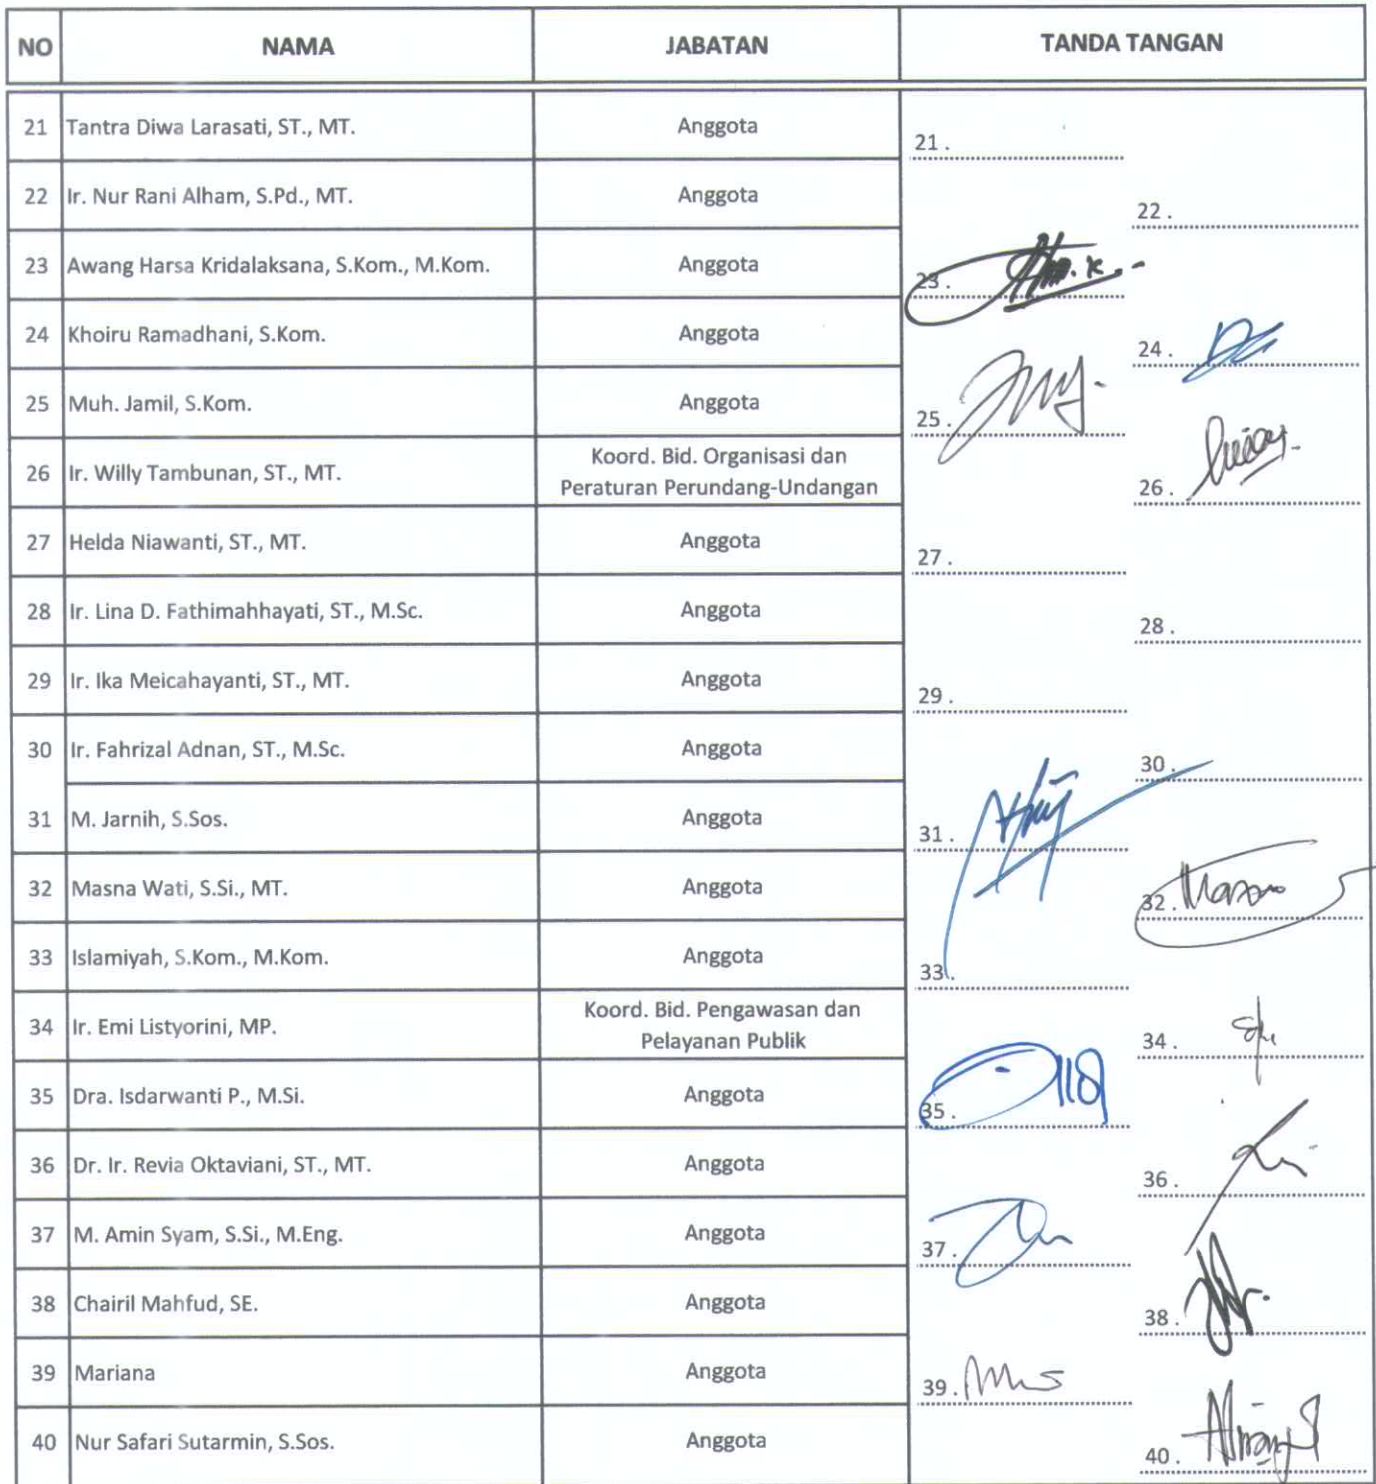 NO NAMA JABATAN TANDA TANGAN
21 Tantra Diwa Larasati, ST., MT. Anggota 21 .
22 Ir. Nur Rani Alham, S.Pd., MT. Anggota 22 .
23 Awang Harsa Kridalaksana, S.Kom., M.Kom. Anggota 23 .
24 Khoiru Ramadhani, S.Kom. Anggota 24 .
25 Muh. Jamil, S.Kom. Anggota 25 .
26 Ir. Willy Tambunan, ST., MT. Koord. Bid. Organisasi dan
Peraturan Perundang-Undangan 26 .
27 Helda Niawanti, ST., MT. Anggota 27 .
28 Ir. Lina D. Fathimahhayati, ST., M.Sc. Anggota 28 .
29 Ir. Ika Meicahayanti, ST., MT. Anggota 29 .
30 Ir. Fahrizal Adnan, ST., M.Sc. Anggota 30 .
31 M. Jarnih, S.Sos. Anggota 31 .
32 Masna Wati, S.Si., MT. Anggota 32 .
33 Islamiyah, S.Kom., M.Kom. Anggota 33 .
34 Ir. Emi Listyorini, MP. Koord. Bid. Pengawasan dan
Pelayanan Publik 34 .
35 Dra. Isdarwanti P., M.Si. Anggota 35 .
36 Dr. Ir. Revia Oktaviani, ST., MT. Anggota 36 .
37 M. Amin Syam, S.Si., M.Eng. Anggota 37 .
38 Chairil Mahfud, SE. Anggota 38 .
39 Mariana Anggota 39 .
40 Nur Safari Sutarmin, S.Sos. Anggota 40 .